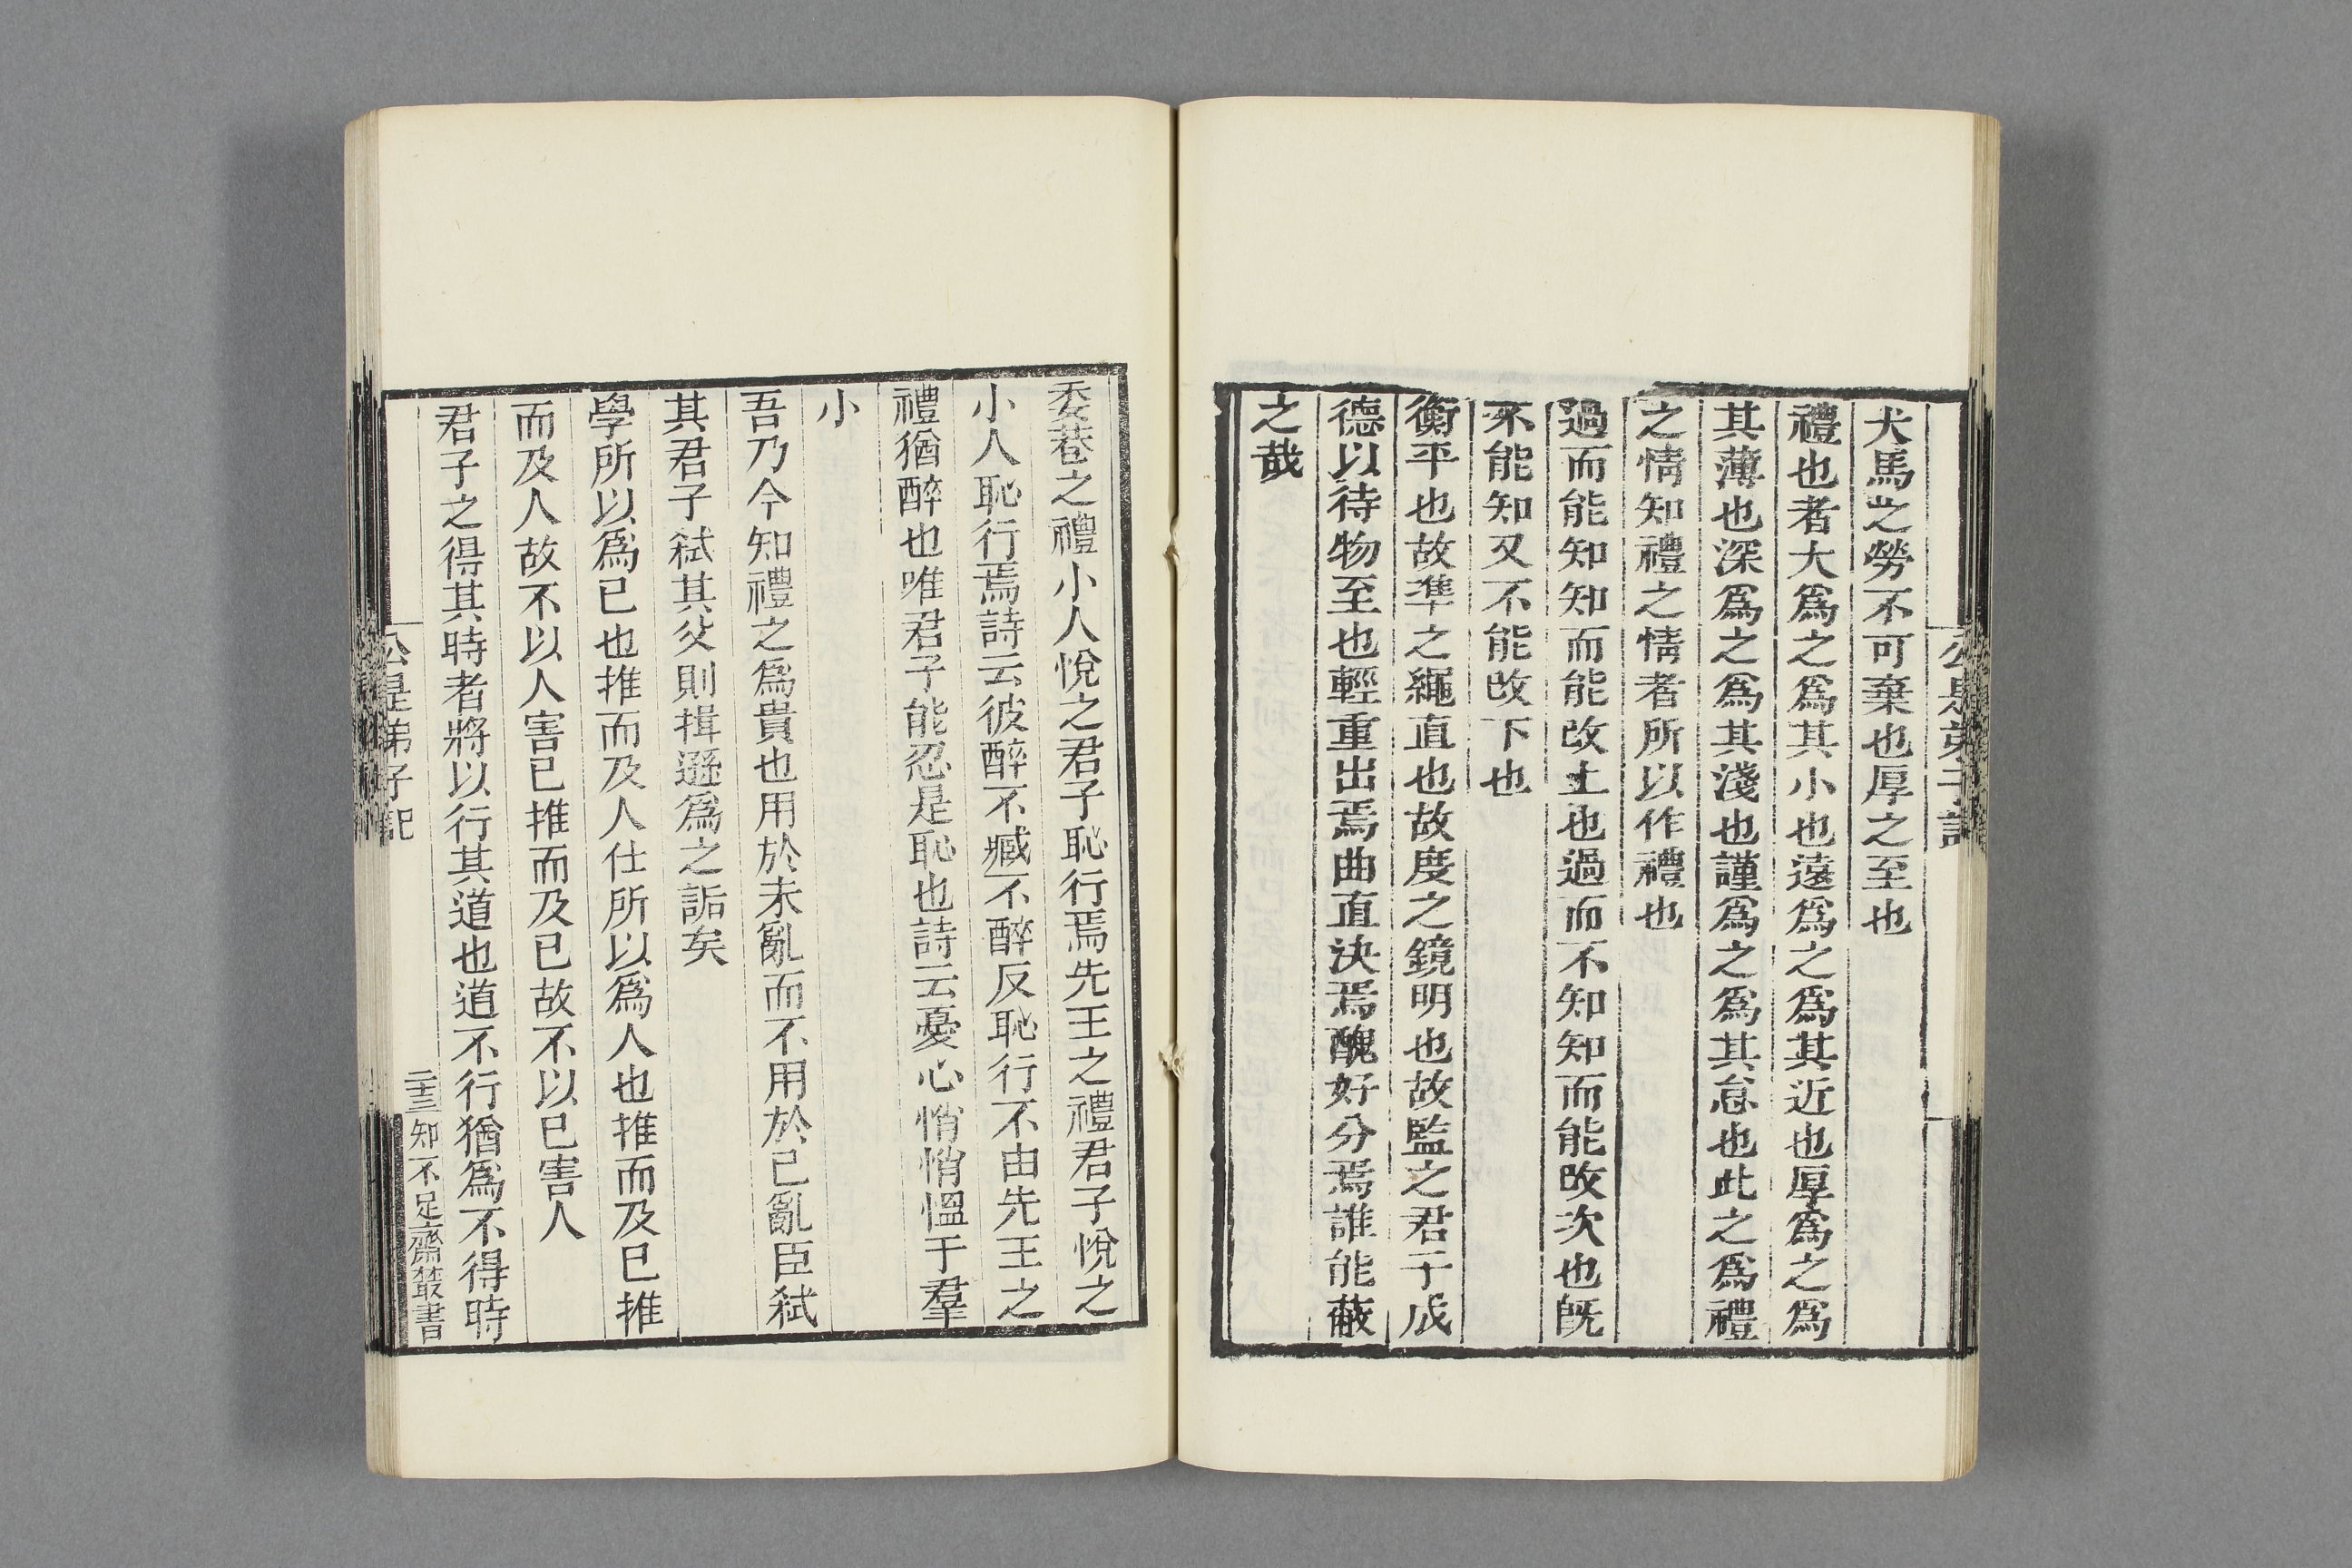 公是弟子記
犬馬之勞不可棄也厚之至也
禮也者大爲之爲其小也遠爲之爲其近也厚爲之爲
其薄也深爲之爲其淺也謹爲之爲其怠也此之爲禮
之情知禮之情者所以作禮也
過而能知知而能改上也過而不知知而能改次也旣
不能知又不能改下也
衡平也故準之繩直也故度之鏡明也故監之君子成
德以待物至也輕重出焉曲直決焉醜好分焉誰能蔽
之哉
委巷之禮小人悅之君子恥行焉先王之禮君子悅之
小人恥行焉詩云彼醉不臧不醉反恥行不由先王之
禮猶醉也唯君子能忍是恥也詩云憂心悄悄慍于羣
小
吾乃今知禮之爲貴也用於未亂而不用於已亂臣弑
其君子弑其父則揖遜爲之詬矣
學所以爲己也推而及人仕所以爲人也推而及己推
而及人故不以人害己推而及己故不以己害人
君子之得其時者將以行其道也道不行猶爲不得時
公是弟子記
二十三
知不足齋叢書